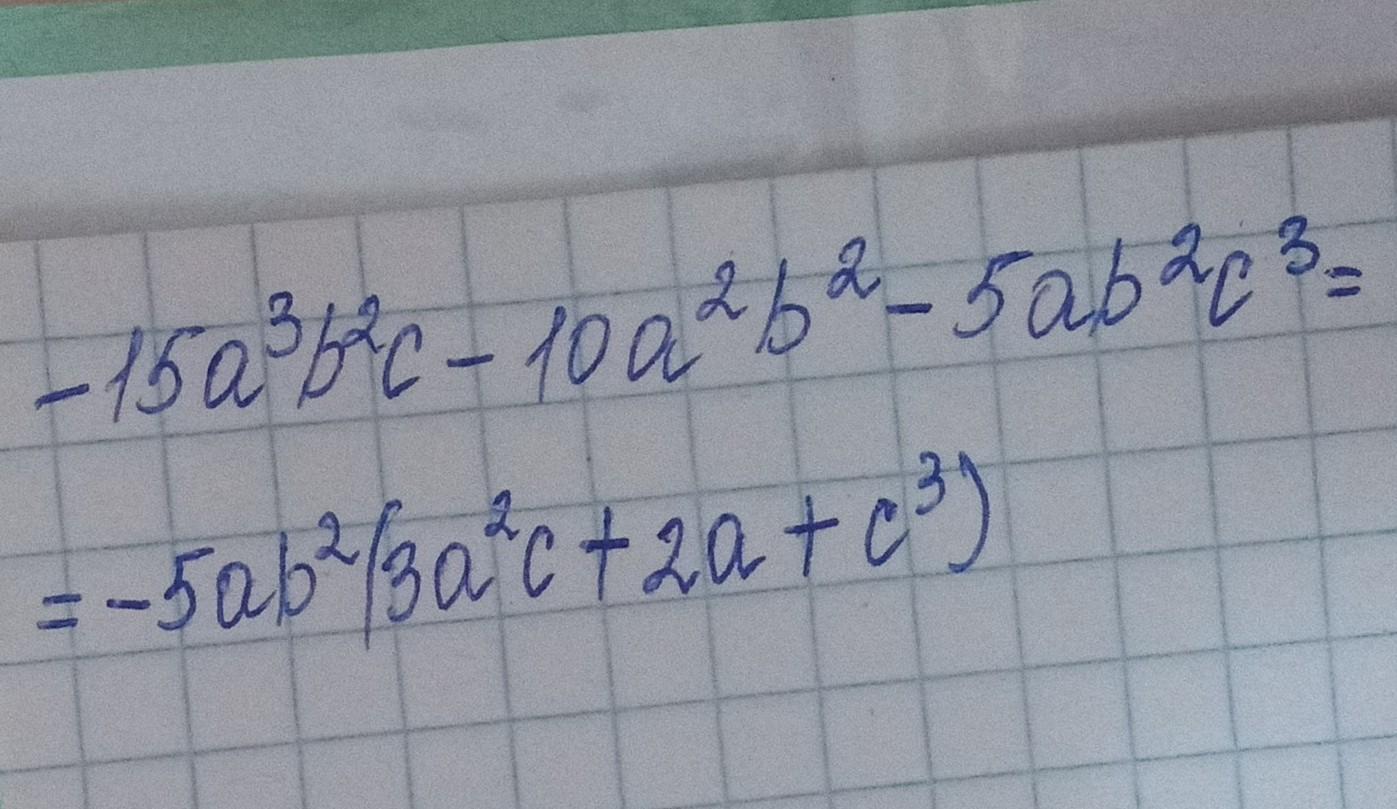 -15a³b²c - 10a²b² - 5ab²c³ =
= -5ab²(3a²c + 2a + c³)